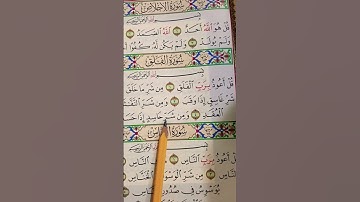 سُورَةُ الْإِخْلَاصِ
قُلْ هُوَ اللَّهُ أَحَدٌ اللَّهُ الصَّمَدُ
وَلَمْ يُولَدْ وَلَمْ يَكُن لَّهُ كُفُوًا
سُورَةُ الْفَلَقِ
قُلْ أَعُوذُ بِرَبِّ الْفَلَقِ مِن شَرِّ مَا خَلَقَ
شَرِّ غَاسِقٍ إِذَا وَقَبَ وَمِن شَرِّ النَّفَّ
الْعُقَدِ وَمِن شَرِّ حَاسِدٍ إِذَا حَسَ
سُورَةُ النَّاسِ
قُلْ أَعُوذُ بِرَبِّ النَّاسِ النَّاسِ
النَّاسِ مِن شَرِّ الْوَسْوَاسِ الْخَنَّاسِ
يُوَسْوِسُ فِي صُدُورِ